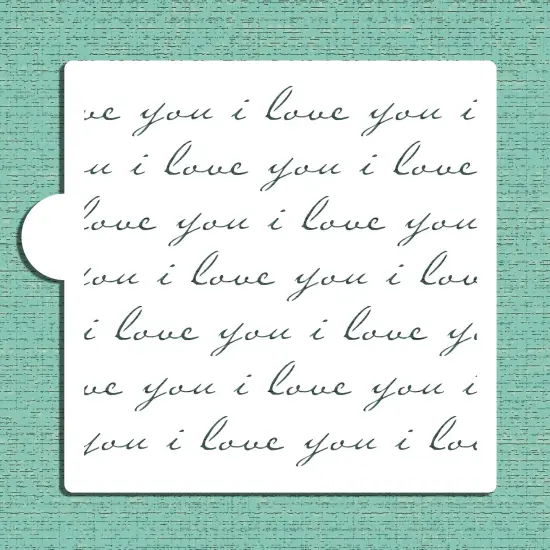 ve you i love you i
u i love you i love
love you i love you
you i love you i lov
i love you i love y
ve you i love you i
you i love you i lov